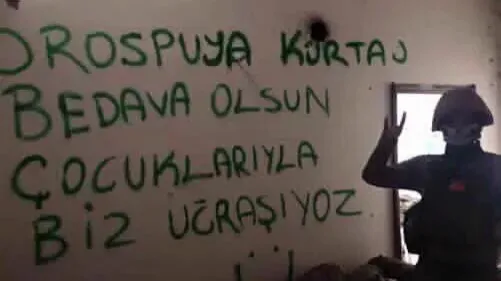 OROSPUYA KÜRTAJ
BEDAVA OLSUN
ÇOCUKLARIYLA
BİZ UĞRAŞIYOZ